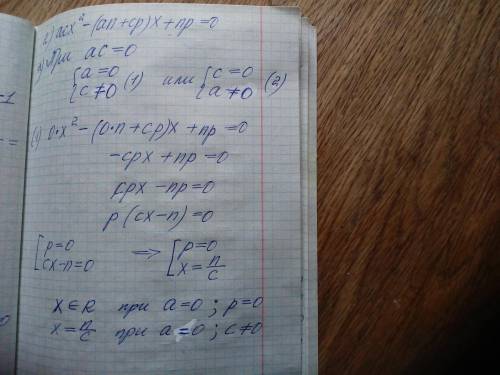 2) acx² - (an + cp)x + np = 0
a) При ac = 0
{ a = 0 c ≠ 0 (1) или { c = 0 a ≠ 0 (2)
(1) 0·x² - (0·n + cp)x + np = 0
-cpx + np = 0
cpx - np = 0
p(cx - n) = 0
[ p = 0 cx - n = 0 ⟹ [ p = 0 x = n/c
x ∈ R при a = 0 ; p = 0
x = n/c при a = 0 ; c ≠ 0